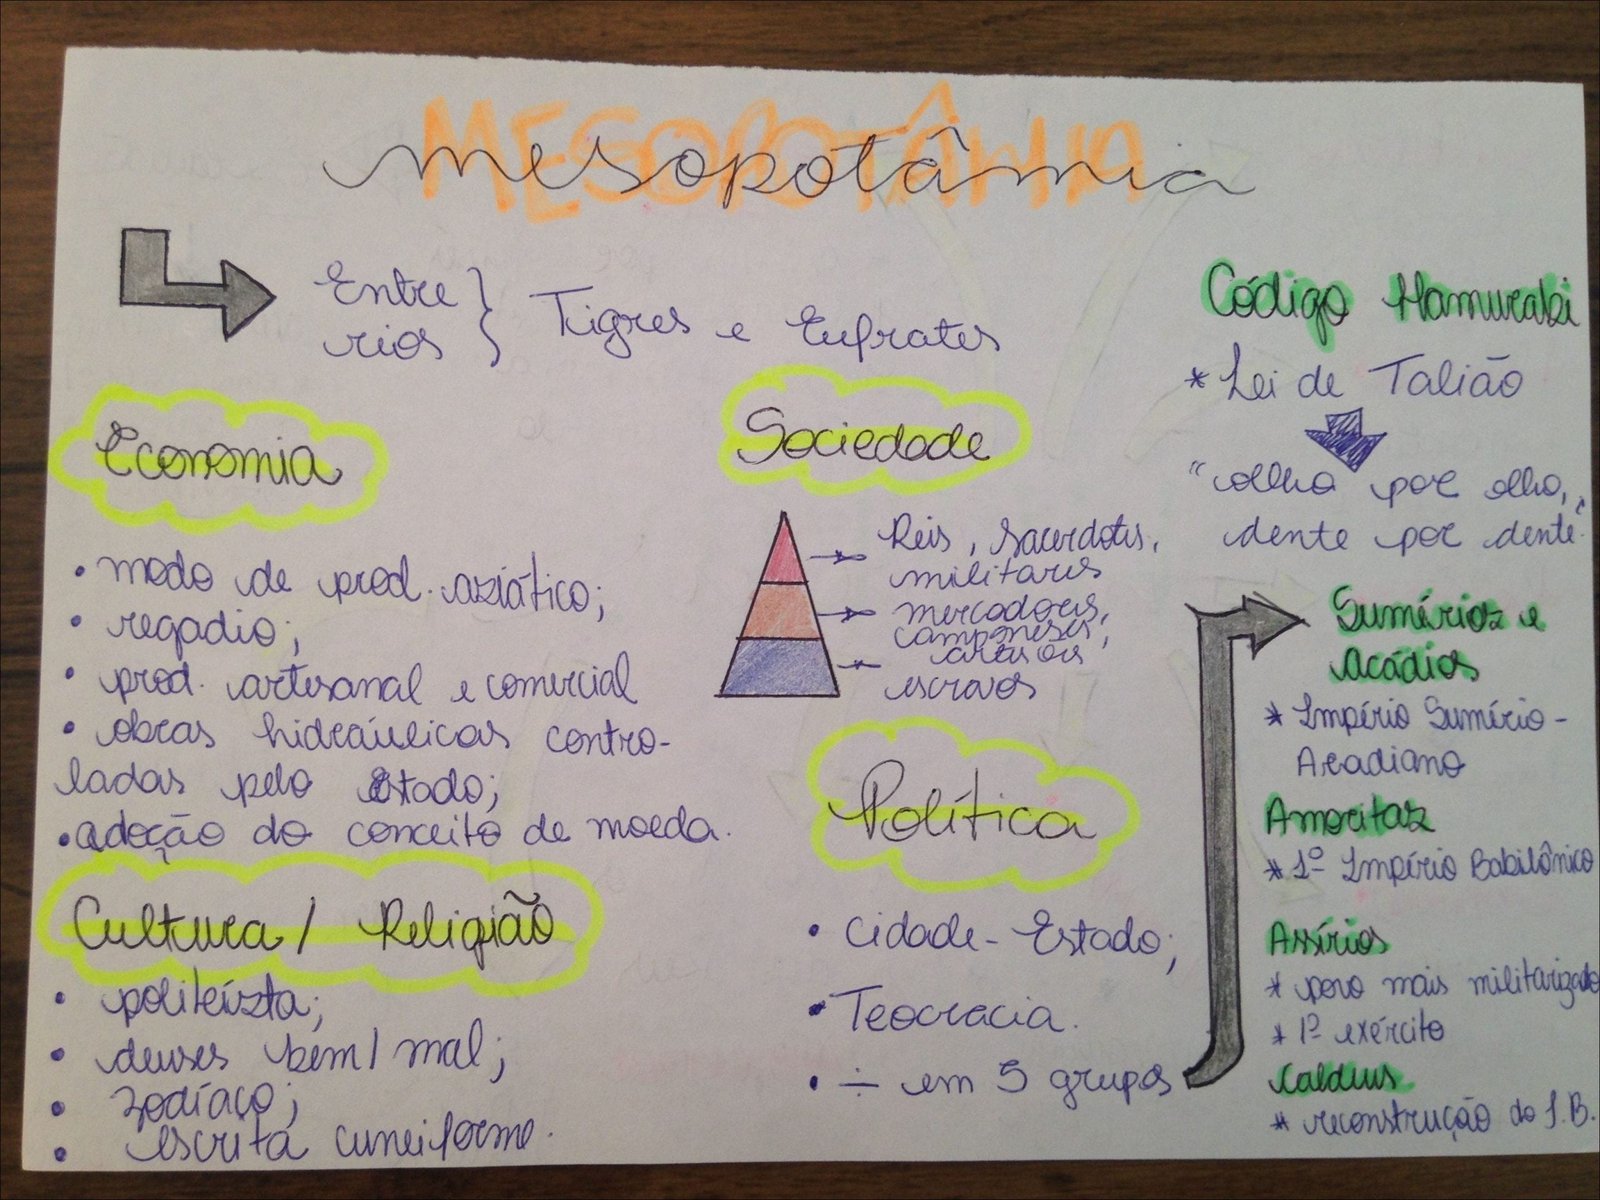 MESOPOTÂMIA
mesopotâmia
Entre
rios } Tigres e Eufrates
Economia
• modo de prod. aziático;
• regadio;
• prod. artesanal e comercial
• obras hidráulicas contro-
ladas pelo Estado;
• adoção do conceito de moeda.
Cultura / Religião
• politeízta;
• deuses bem / mal;
• zodíaco;
• escrita cuneiforme.
Sociedade
Reis, sacerdotes,
militares
mercadores,
camponeses,
artesãos
escravos
Política
• Cidade-Estado;
• Teocracia.
• ÷ em 5 grupos
Código Hamurabi
* Lei de Talião
"olho por olho,
dente por dente"
Sumérioz e
Acádios
* Império Sumério-
Acadiano
Amoritaz
* 1º Império Babilônico
Assírios
* povo mais militarizado
* 1º exército
Caldeus
* reconstrução do I.B.